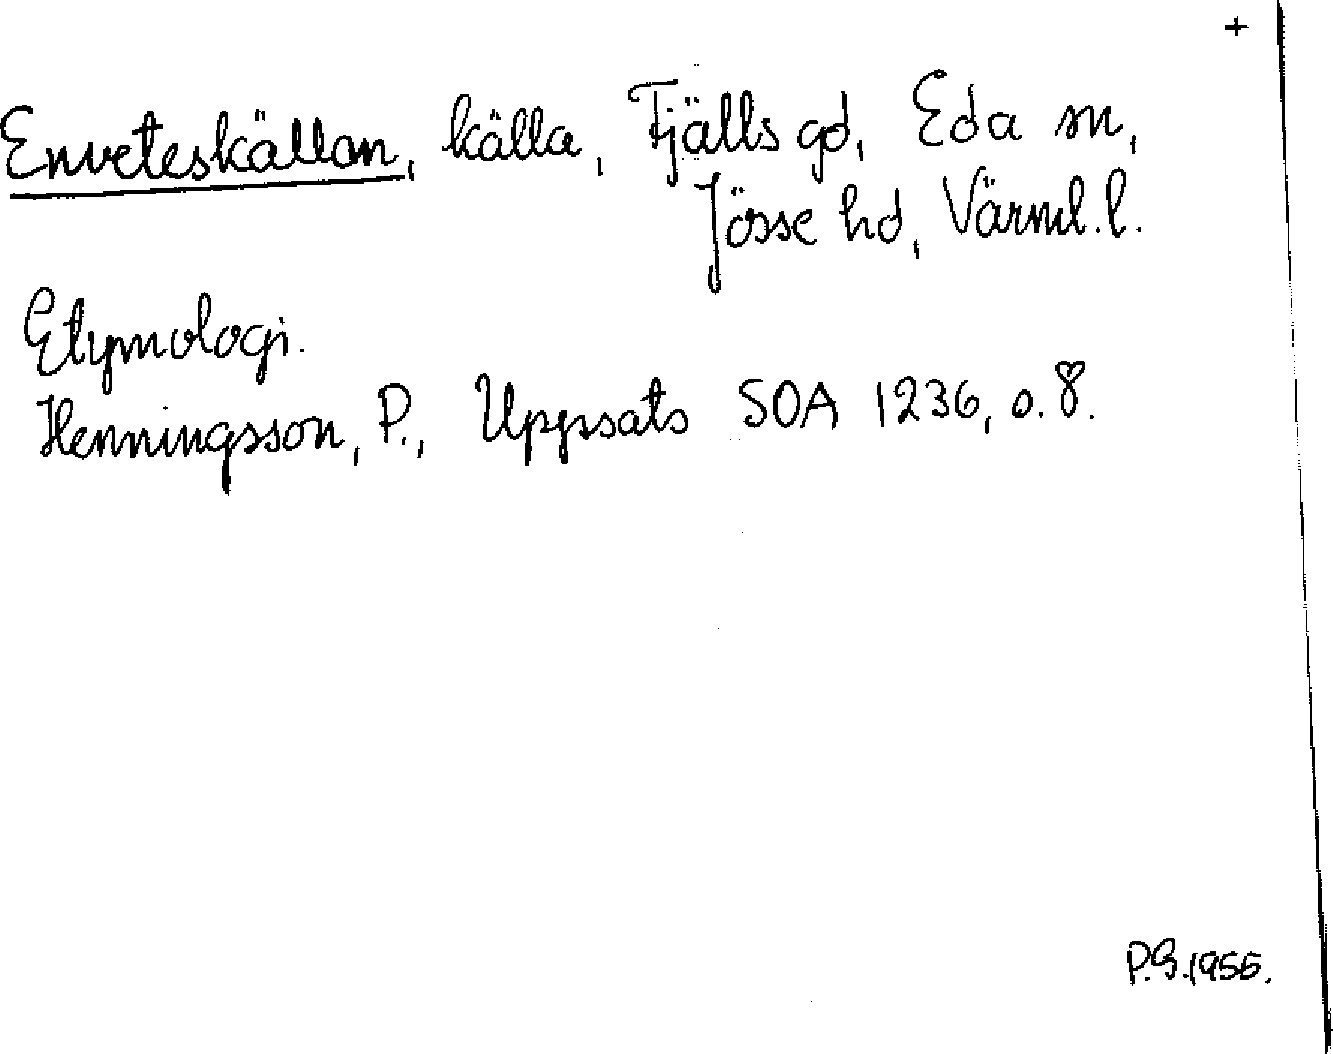 +
Enveteskällan, källa, Fjälls gd, Eda sn,
Jösse hd, Värml. l.
Etymologi.
Henningsson, P., Uppsats SOA 1236, s. 8.
P.G. 1955.